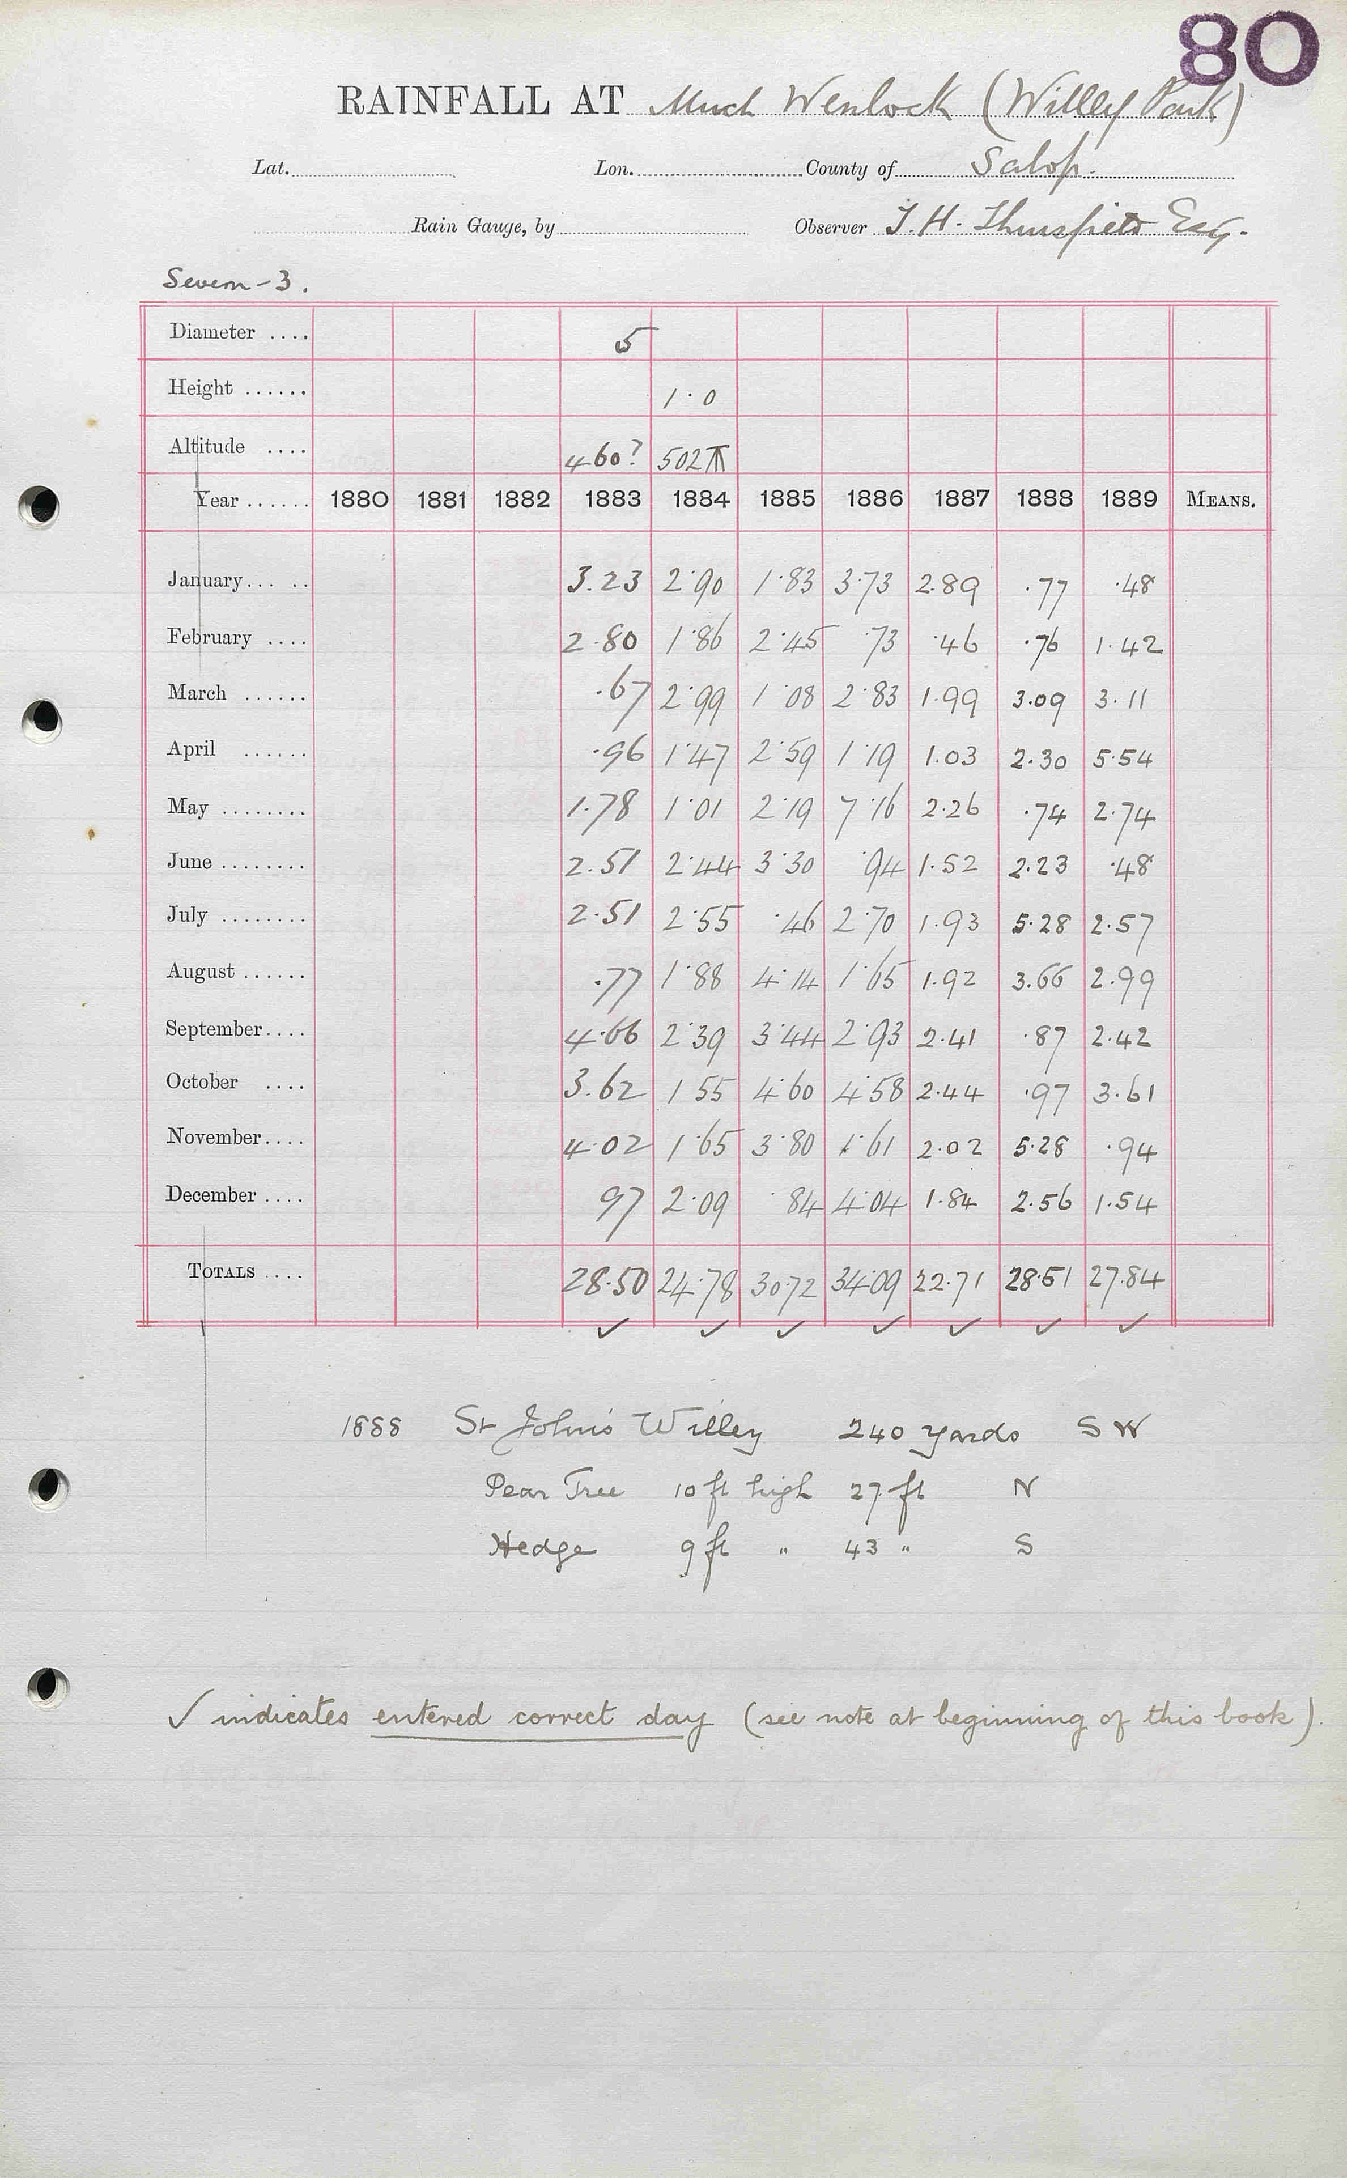 80
RAINFALL AT Much Wenlock (Willey Park)
Lat. Lon. County of Salop.
Rain Gauge, by Observer T. H. Thursfield Esq.
Severn - 3.
Diameter .... 5
Height ...... 1·0
Altitude .... 460? 502
Year ...... 1880 1881 1882 1883 1884 1885 1886 1887 1888 1889 MEANS.
January... .. 3.23 2·90 1·83 3·73 2.89 ·77 ·48
February .... 2.80 1·86 2·45 ·73 ·46 ·76 1.42
March ...... .67 2·99 1·08 2·83 1.99 3.09 3.11
April ...... .96 1·47 2·59 1·19 1.03 2.30 5.54
May ........ 1.78 1·01 2·19 7·16 2.26 .74 2.74
June ........ 2.51 2·44 3·30 ·94 1.52 2.23 ·48
July ........ 2.51 2·55 ·46 2·70 1.93 5.28 2.57
August ...... .77 1·88 4·14 1·65 1.92 3.66 2.99
September.... 4.66 2·39 3·44 2·93 2.41 ·87 2.42
October .... 3.62 1·55 4·60 4·58 2.44 ·97 3.61
November.... 4.02 1·65 3·80 1·61 2.02 5.28 ·94
December .... 97 2·09 ·84 4·04 1.84 2.56 1.54
TOTALS .... 28.50 24.78 30.72 34.09 22.71 28.51 27.84
✓ ✓ ✓ ✓ ✓ ✓ ✓
1888 St John's Willey 240 yards S W
Pear Tree 10 ft high 27 ft N
Hedge 9 ft " 43 " S
✓ indicates entered correct day (see note at beginning of this book).